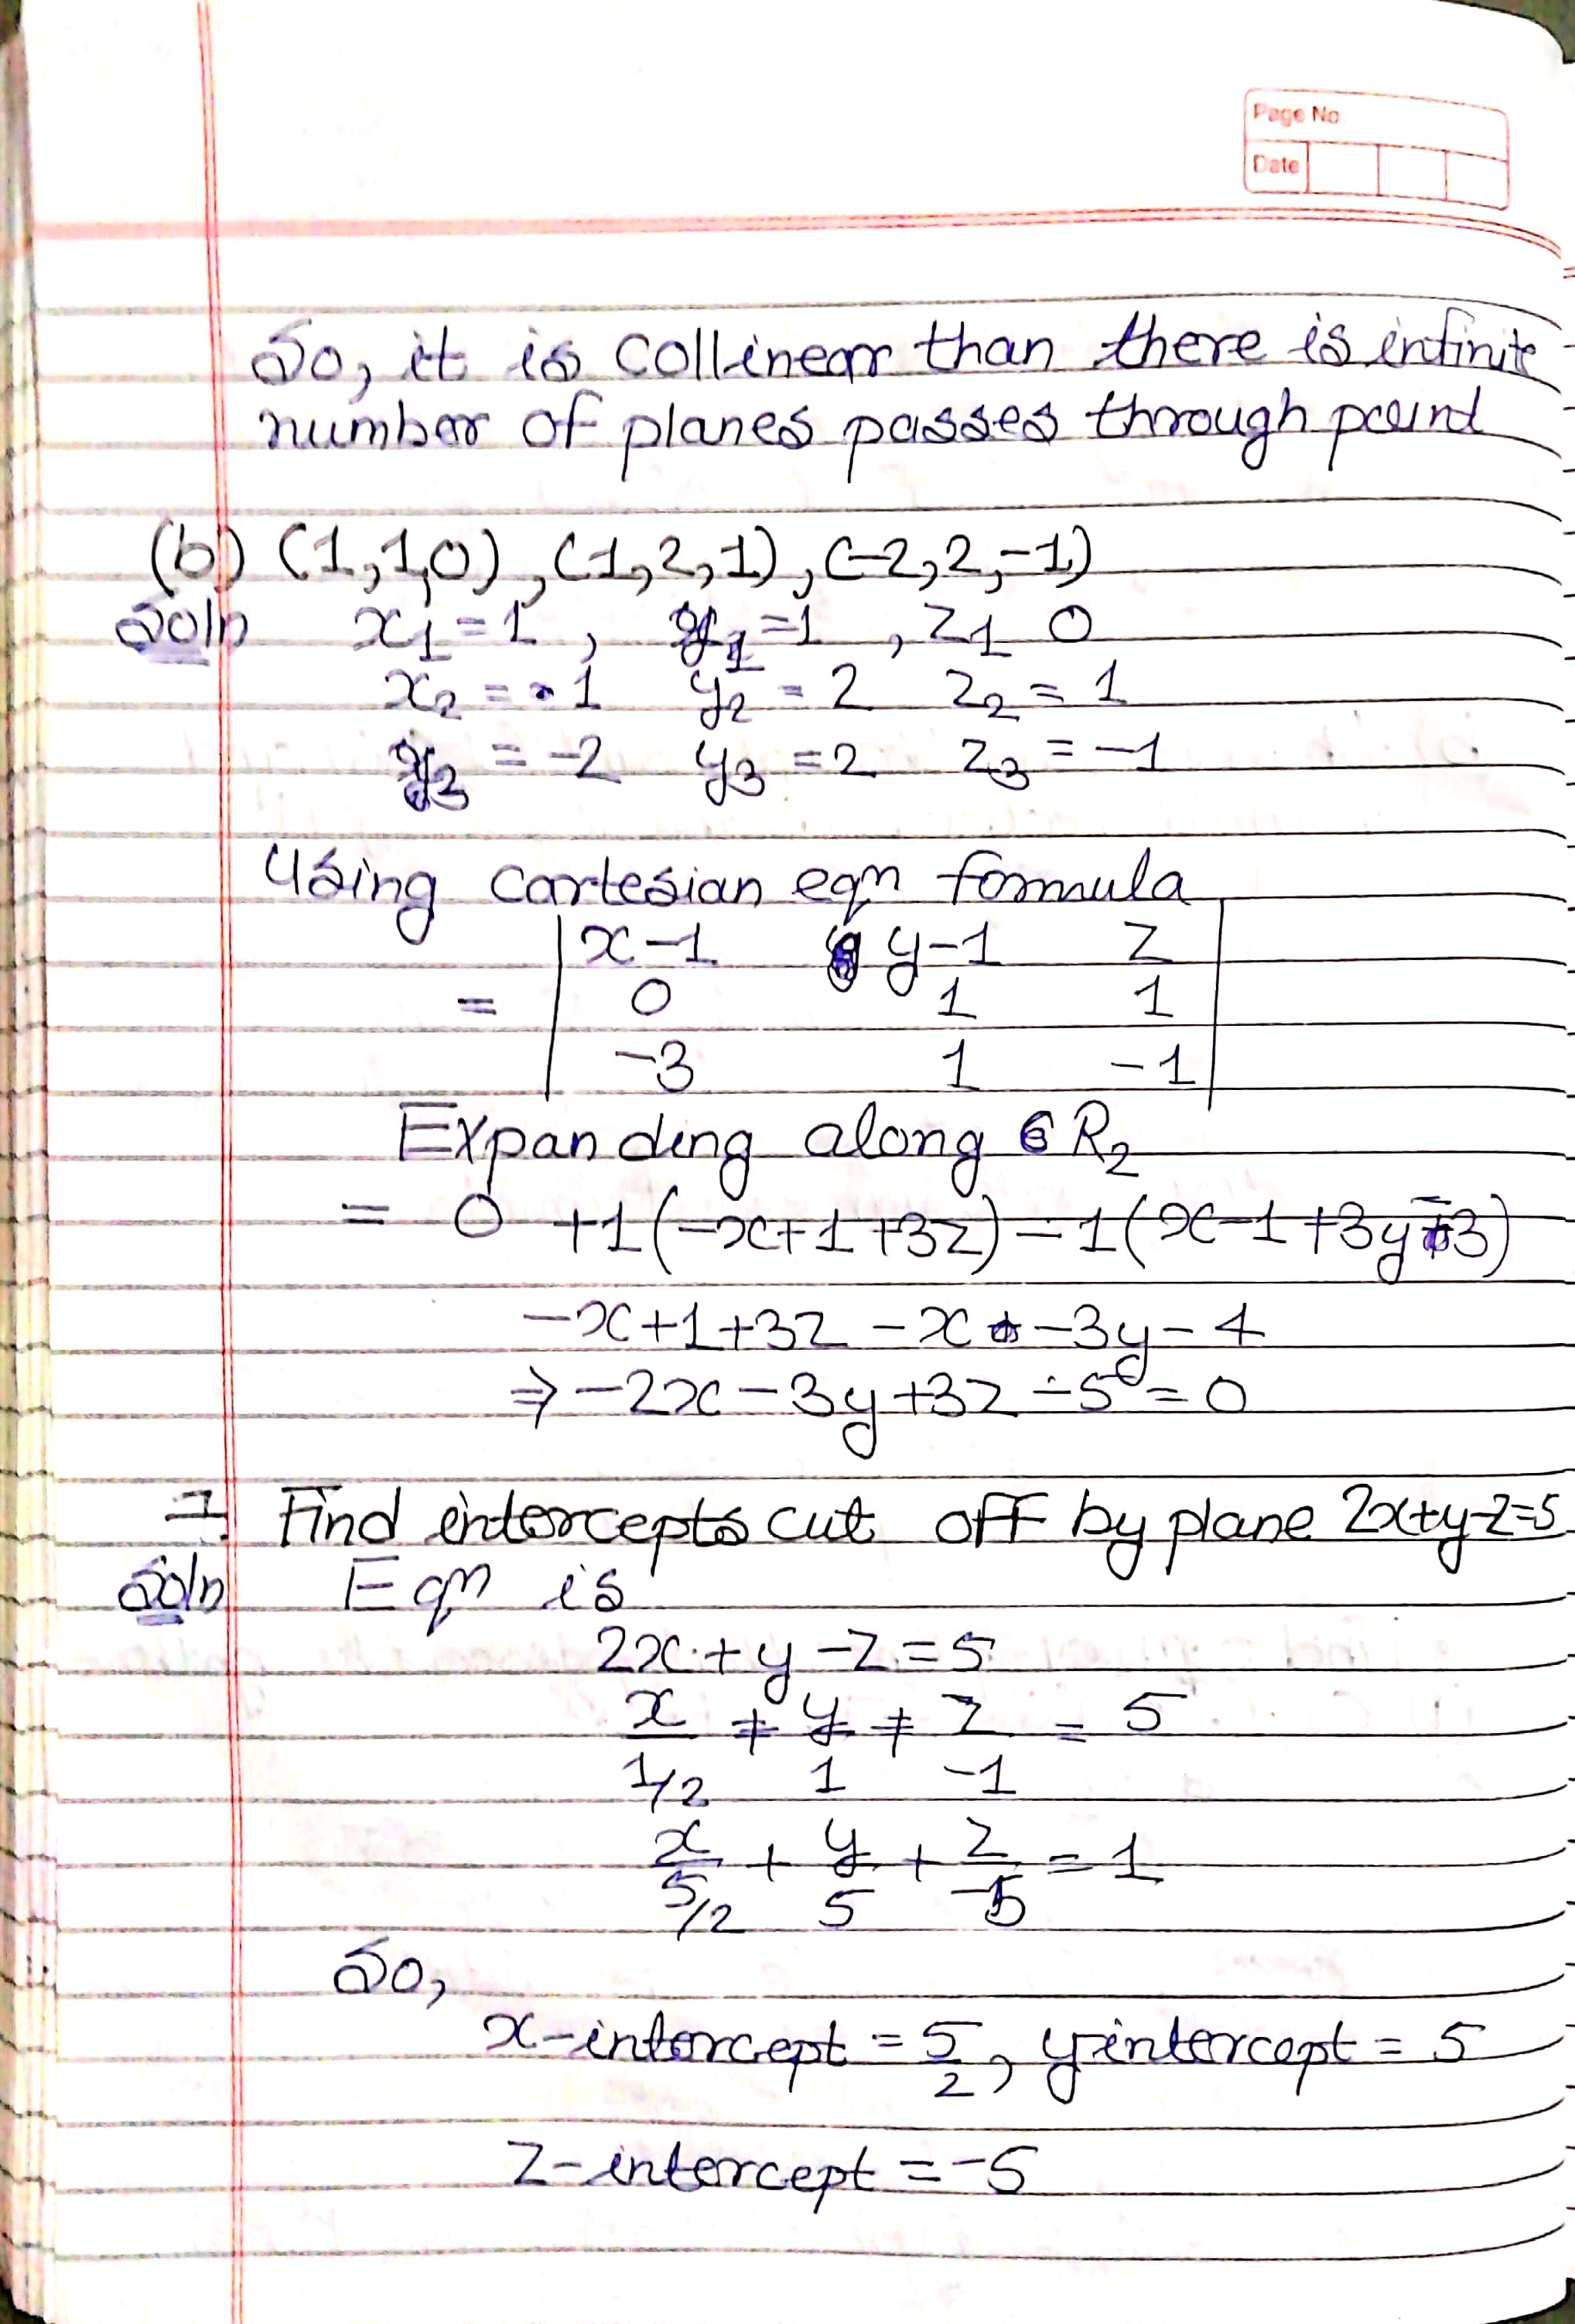 Page No
Date
So, it is collinear than there is infinite
number of planes passes through point
(b) (1,1,0), (1,2,1), (-2,2,-1)
Soln x₁=1, y₁=1, z₁ 0
x₂ = 1 y₂ = 2 z₂ = 1
y₃ = -2 y₃ = 2 z₃ = -1
Using cartesian eqn formula
x-1 y-1 z
= 0 1 1
-3 1 -1
Expanding along R₂
= 0 +1(-x+1+3z) -1(x-1+3y-3)
-x+1+3z -x -3y-4
⇒ -2x-3y+3z-5=0
7. Find intercepts cut off by plane 2x+y-z=5
Soln Eqn is
2x+y-z=5
x/1/2 + y/1 + z/-1 = 5
x/5/2 + y/5 + z/-5 = 1
So,
x-intercept = 5/2, y intercept = 5
z-intercept = -5